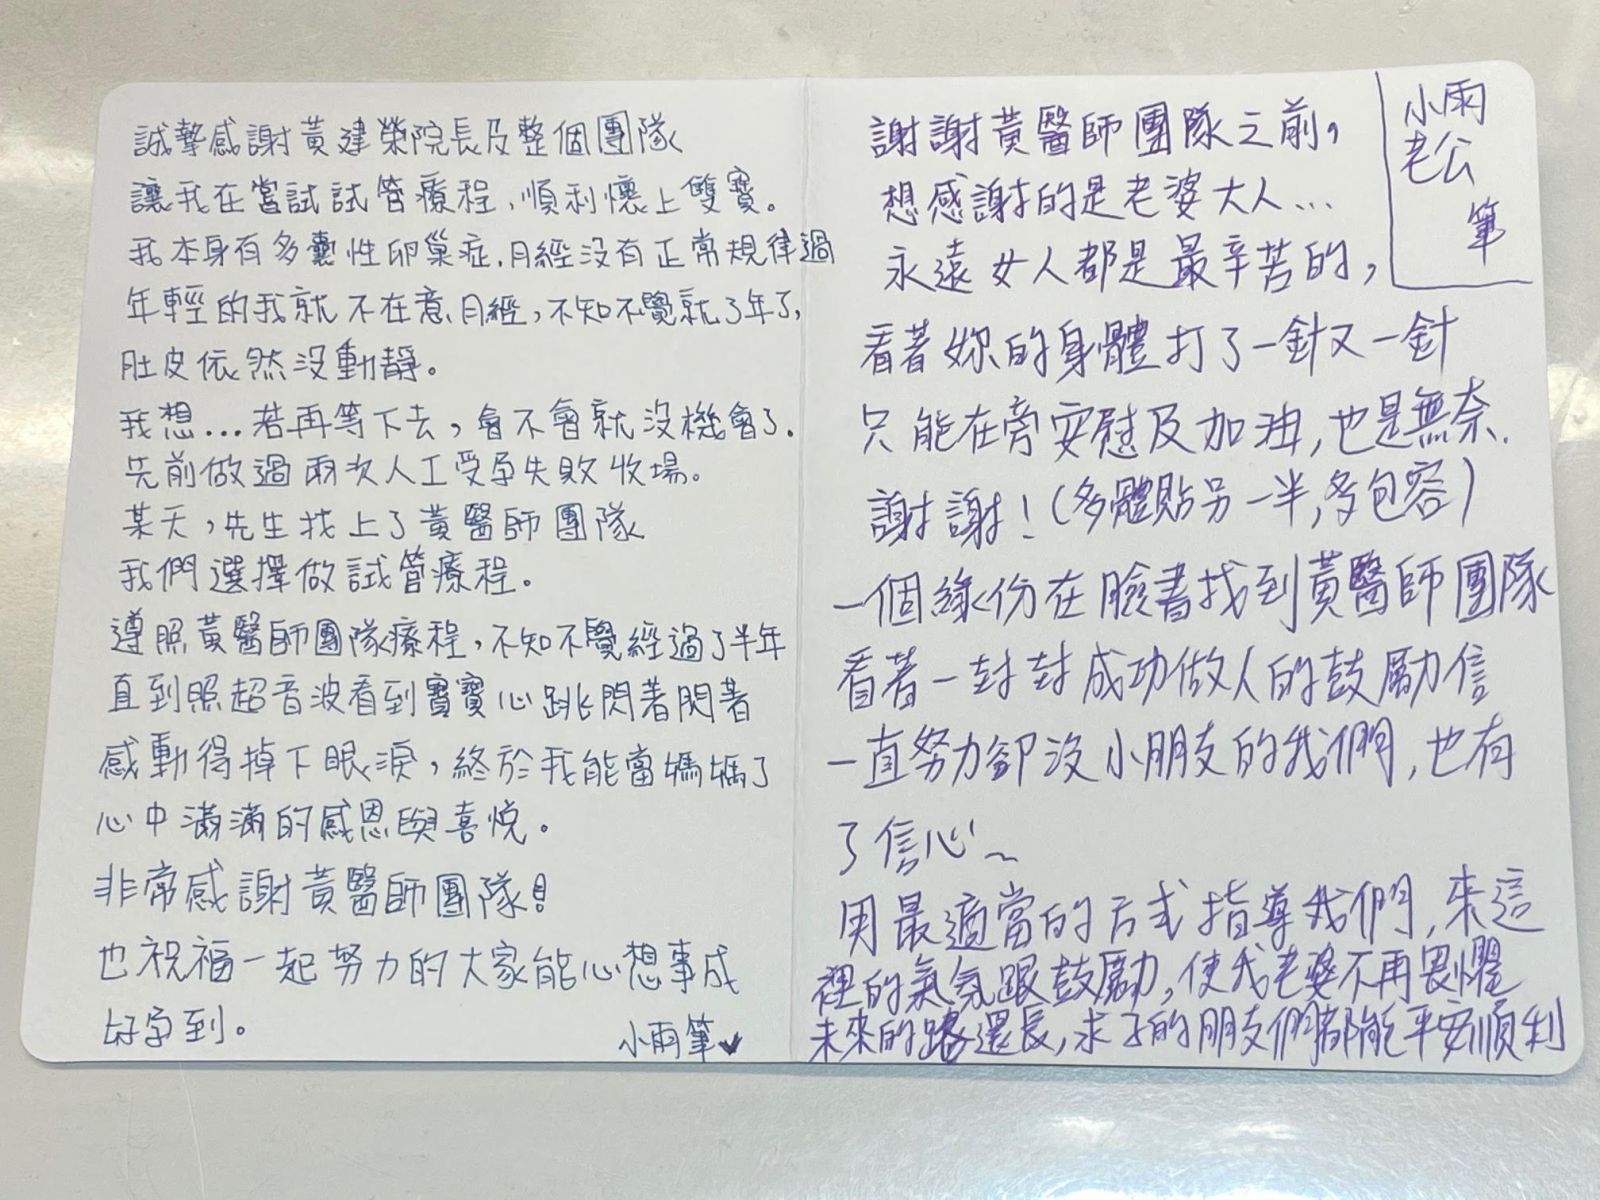 誠摯感謝黃建榮院長及整個團隊
讓我在嘗試試管療程,順利懷上雙寶。
我本身有多囊性卵巢症,月經沒有正常規律過
年輕的我就不在意月經,不知不覺就了年了,
肚皮依然沒動靜。
我想...若再等下去,會不會就沒機會了.
先前做過兩次人工受孕失敗收場。
某天,先生找上了黃醫師團隊
我們選擇做試管療程。
遵照黃醫師團隊療程,不知不覺經過了半年
直到照超音波看到寶寶心跳閃著閃著
感動得掉下眼淚,終於我能當媽媽了
心中滿滿的感恩與喜悅。
非常感謝黃醫師團隊!
也祝福一起努力的大家能心想事成
好孕到。
小雨筆
小雨
老公
筆
謝謝黃醫師團隊之前,
想感謝的是老婆大人...
永遠女人都是最辛苦的,
看著妳的身體打了一針又一針
只能在旁安慰及加油,也是無奈.
謝謝!(多體貼另一半,多包容)
一個緣份在臉書找到黃醫師團隊
看著一封封成功做人的鼓勵信
一直努力卻沒小朋友的我們,也有
了信心~
用最適當的方式指導我們,來這
裡的氣氛跟鼓勵,使我老婆不再畏懼
未來的路還長,求子的朋友們都能平安順利